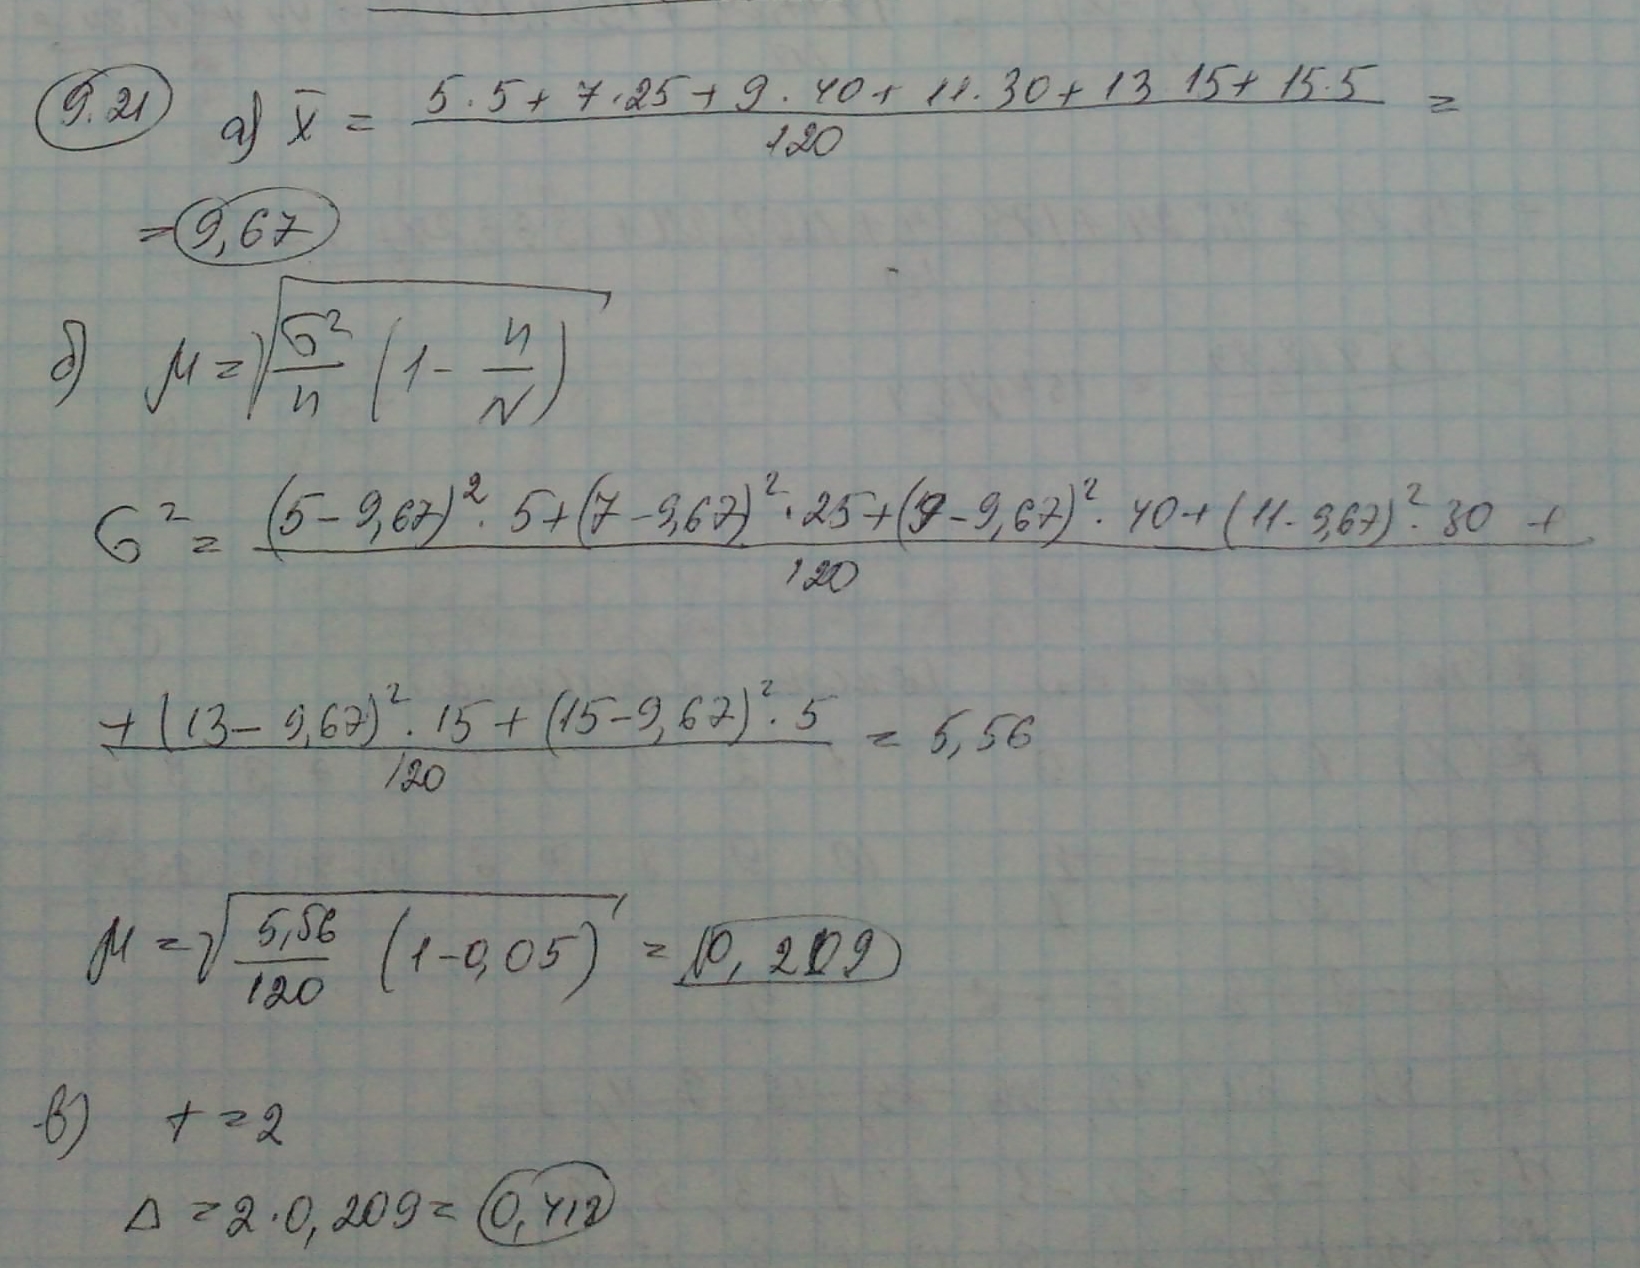 9.21 а) x̄ = (5·5+7·25+9·40+11·30+13 15+15·5)/120 =
= 9,67
б) μ = √(σ²/n (1 - n/N))
σ² = ((5-9,67)²·5+(7-9,67)²·25+(9-9,67)²·40+(11-9,67)²·30 +)/120
(+(13-9,67)²·15+(15-9,67)²·5)/120 = 5,56
μ = √(5,56/120 (1-0,05)) = 0,209
в) t = 2
Δ = 2·0,209 = 0,412